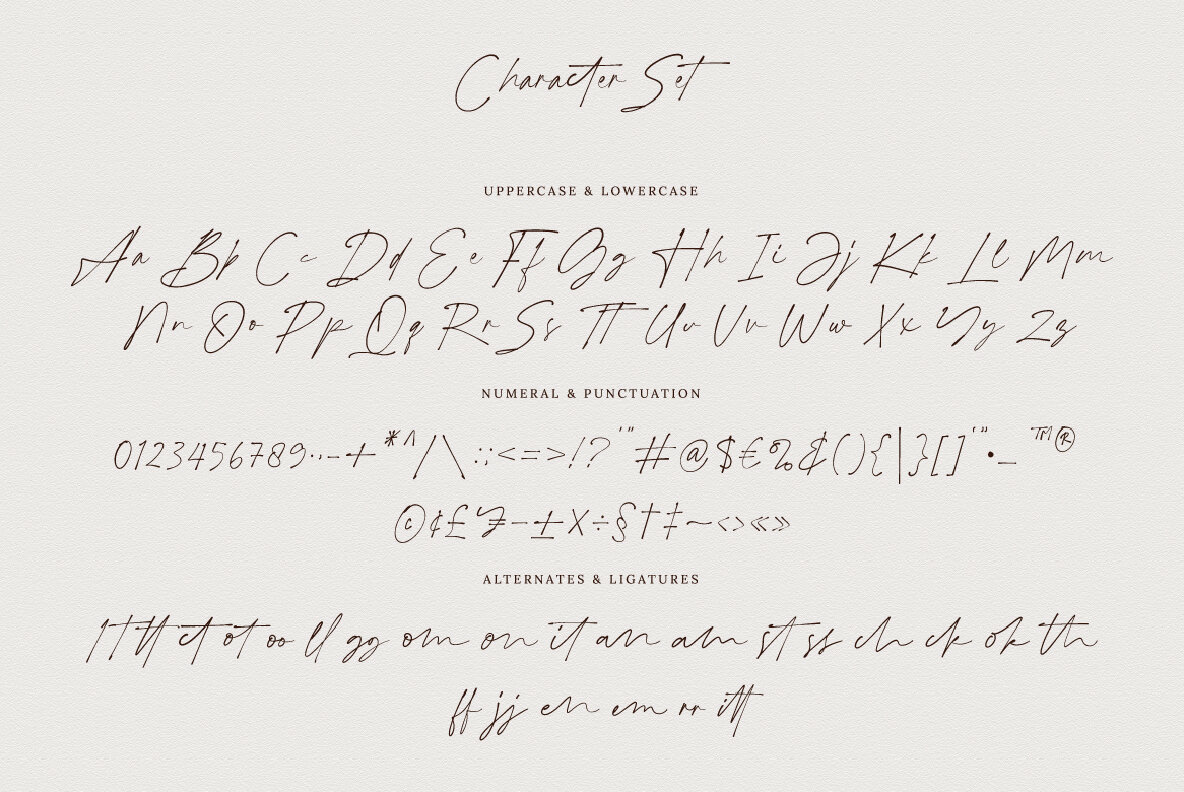 Character Set
UPPERCASE & LOWERCASE
Aa Bb Cc Dd Ee Ff Gg Hh Ii Jj Kk Ll Mm
Nn Oo Pp Qq Rr Ss Tt Uu Vv Ww Xx Yy Zz
NUMERAL & PUNCTUATION
0123456789.,-+*^/\:;<=>!?'"#@$€%&(){|}[]'"•_™®
©¢£¥−±×÷§†‡~‹›«»
ALTERNATES & LIGATURES
tt ct ot oo ll gg om on it an am st ss ch ck ok th
ff jj en em rr itt